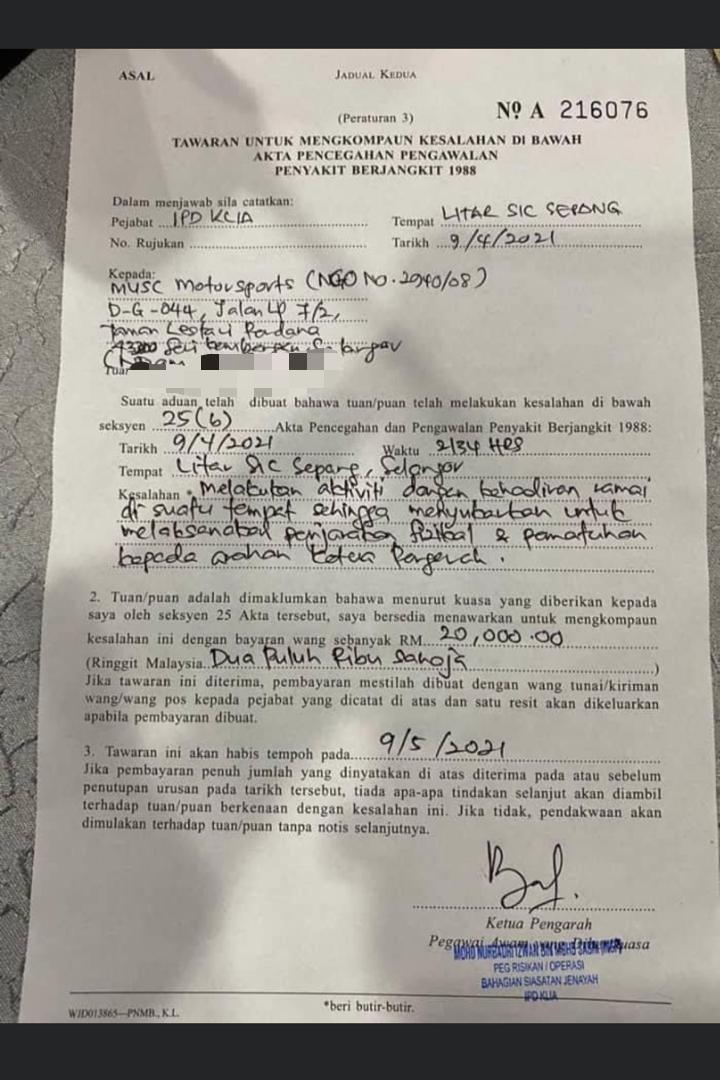 ASAL
JADUAL KEDUA
Nº A 216076
(Peraturan 3)
TAWARAN UNTUK MENGKOMPAUN KESALAHAN DI BAWAH
AKTA PENCEGAHAN PENGAWALAN
PENYAKIT BERJANGKIT 1988
Dalam menjawab sila catatkan:
Pejabat IPD KLIA
Tempat LITAR SIC SEPANG
No. Rujukan
Tarikh 9/4/2021
Kepada:
MUSC Motorsports (NGO No. 2940/08)
D-G-044, Jalan LP 7/2,
Taman Lestari Perdana
43300 Seri Kembangan
Suatu aduan telah dibuat bahawa tuan/puan telah melakukan kesalahan di bawah
seksyen 25(b) Akta Pencegahan dan Pengawalan Penyakit Berjangkit 1988:
Tarikh 9/4/2021 Waktu 2134 HRS
Tempat Litar SIC Sepang, Selangor
Kesalahan * Melakukan aktiviti dengan kehadiran ramai
di suatu tempat sehingga menyukarkan untuk
melaksanakan penjarakan fizikal & pematuhan
kepada arahan Ketua Pengarah.
2. Tuan/puan adalah dimaklumkan bahawa menurut kuasa yang diberikan kepada
saya oleh seksyen 25 Akta tersebut, saya bersedia menawarkan untuk mengkompaun
kesalahan ini dengan bayaran wang sebanyak RM 20,000.00
(Ringgit Malaysia Dua Puluh Ribu Sahaja)
Jika tawaran ini diterima, pembayaran mestilah dibuat dengan wang tunai/kiriman
wang/wang pos kepada pejabat yang dicatat di atas dan satu resit akan dikeluarkan
apabila pembayaran dibuat.
3. Tawaran ini akan habis tempoh pada 9/5/2021
Jika pembayaran penuh jumlah yang dinyatakan di atas diterima pada atau sebelum
penutupan urusan pada tarikh tersebut, tiada apa-apa tindakan selanjut akan diambil
terhadap tuan/puan berkenaan dengan kesalahan ini. Jika tidak, pendakwaan akan
dimulakan terhadap tuan/puan tanpa notis selanjutnya.
Ketua Pengarah
Pegawai Awam yang Diberi Kuasa
MOHD NURBADRI IZWAN BIN MOHD
PEG RISIKAN / OPERASI
BAHAGIAN SIASATAN JENAYAH
IPD KLIA
*beri butir-butir.
WJD013865—PNMB., K.L.